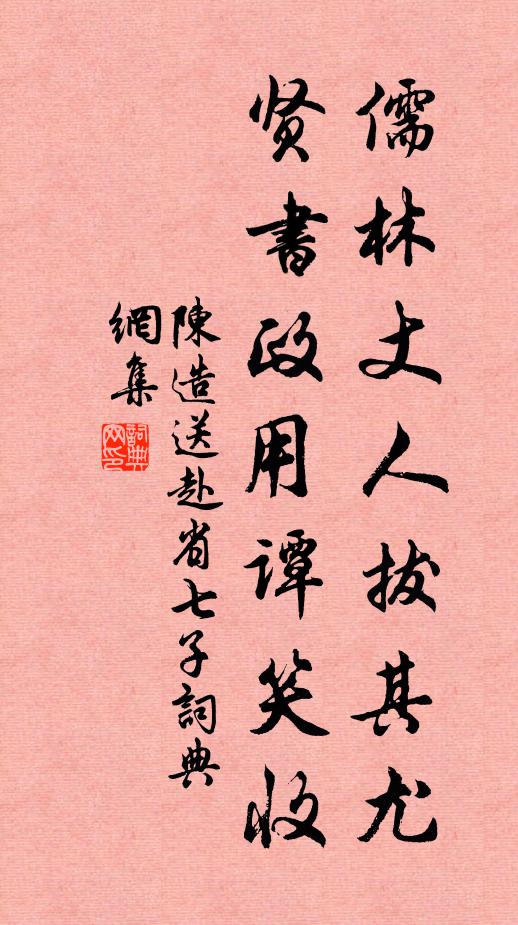 儒林丈人拔其尤
贤書政用谭笑收
陳造送赴省七子詞典
網集
詞典網印